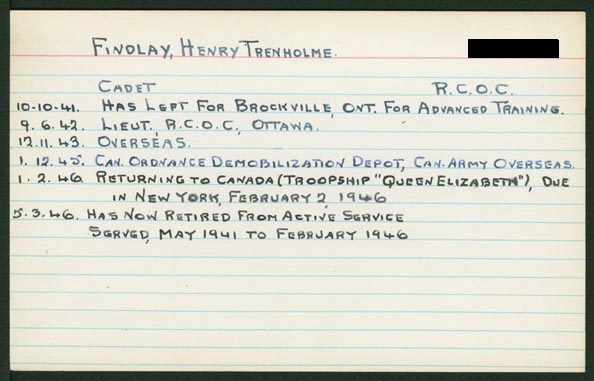 FINDLAY, HENRY TRENHOLME.
CADET R.C.O.C.
10-10-41. HAS LEFT FOR BROCKVILLE, ONT. FOR ADVANCED TRAINING.
9.6.42. LIEUT., R.C.O.C., OTTAWA.
12.11.43. OVERSEAS.
1.12.45. CAN. ORDNANCE DEMOBILIZATION DEPOT, CAN. ARMY OVERSEAS.
1.2.46. RETURNING TO CANADA (TROOPSHIP "QUEEN ELIZABETH"), DUE
IN NEW YORK, FEBRUARY 2, 1946
5.3.46. HAS NOW RETIRED FROM ACTIVE SERVICE
SERVED, MAY 1941 TO FEBRUARY 1946